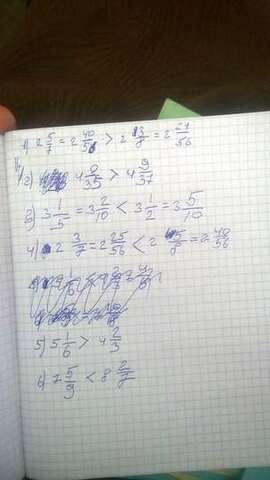 1) 2 5/7 = 2 40/56 > 2 3/8 = 2 21/56
2) 4 9/35 > 4 9/37
3) 3 1/5 = 3 2/10 < 3 1/2 = 3 5/10
4) 2 3/7 = 2 25/56 < 2 5/8 = 2 40/56
5) 5 1/6 > 4 2/3
6) 7 5/9 < 8 2/7